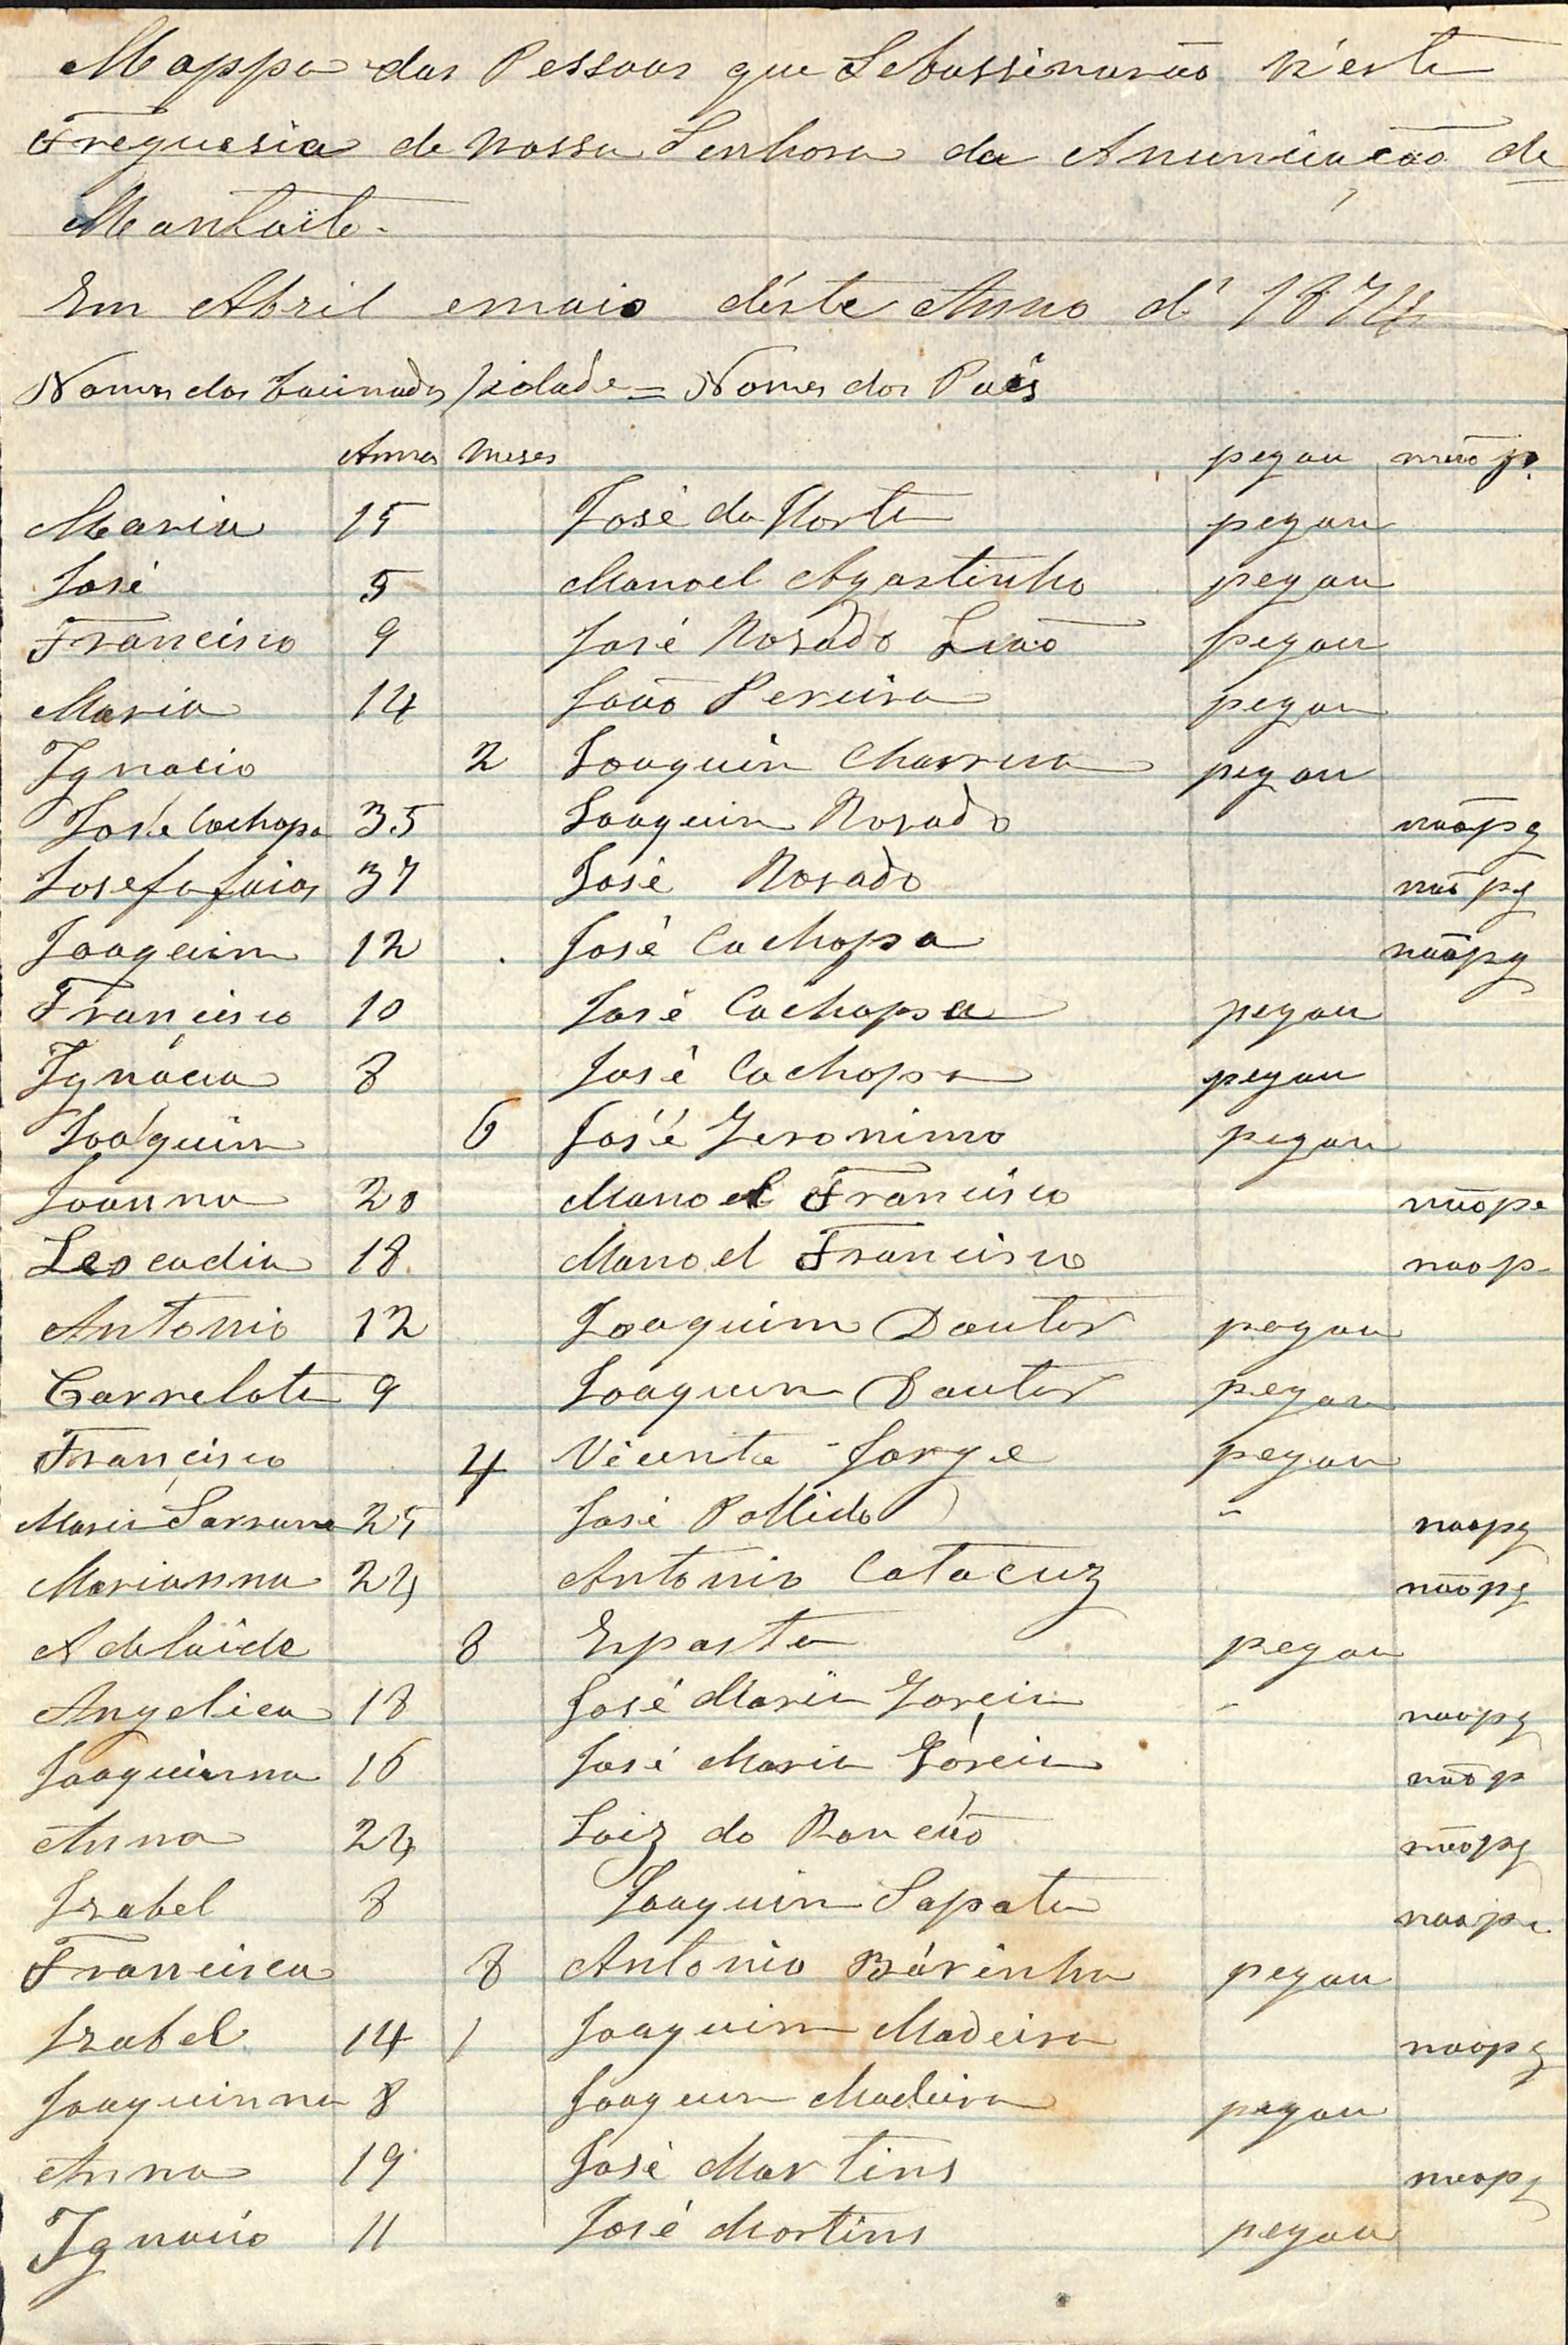 Mappa das Pessoas que Sebassinarão n'esta
Freguesia de Nossa Senhora da Anunciação de
Em Abril e maio d'este Anno d' 1874
Nomes dos Vacinados Idade = Nomes dos Paës
Annos Meses pegou não p.
Maria 15 José da Horta pegou
José 5 Manoel Agostinho pegou
Francisco 9 José Rosado Lião pegou
Maria 14 João Pereira pegou
Ignacio 2 Joaquin Charrua pegou
José Cachopa 35 Joaquin Rosado nãopg
Josefa 37 José Rosado não pg
Joaquim 12 José Cachopa nãopg
Francisco 10 José Cachopa pegou
Ignácia 8 José Cachopa pegou
Joáquim 6 José Jeronimo pegou
Joanna 20 Manoel Francisco nãope
Leocadia 18 Manoel Francisco naop
Antonio 12 Joaquim Doutor pegou
Carrelota 9 Joaquim Doutor pegou
Francisco 4 Vicente Jorge pegou
Maria 25 José Pollido naopg
Marianna 24 Antonio Catacuz nãopg
Adelaide 8 Esposta pegou
Angelica 18 José Maria naopg
Joaquinna 16 José Maria não p
Anna 24 Luiz do Roncão nãopg
Izabel 8 Joaquin Sapata naope
Francisca 8 Antonio Bárinha pegou
Izabel 14 1 Joaquim Madeira naopg
Joaquinna 8 Joaquin Madeira pegou
Anna 19 José Martins naopg
Ignacio 11 José Martins pegou